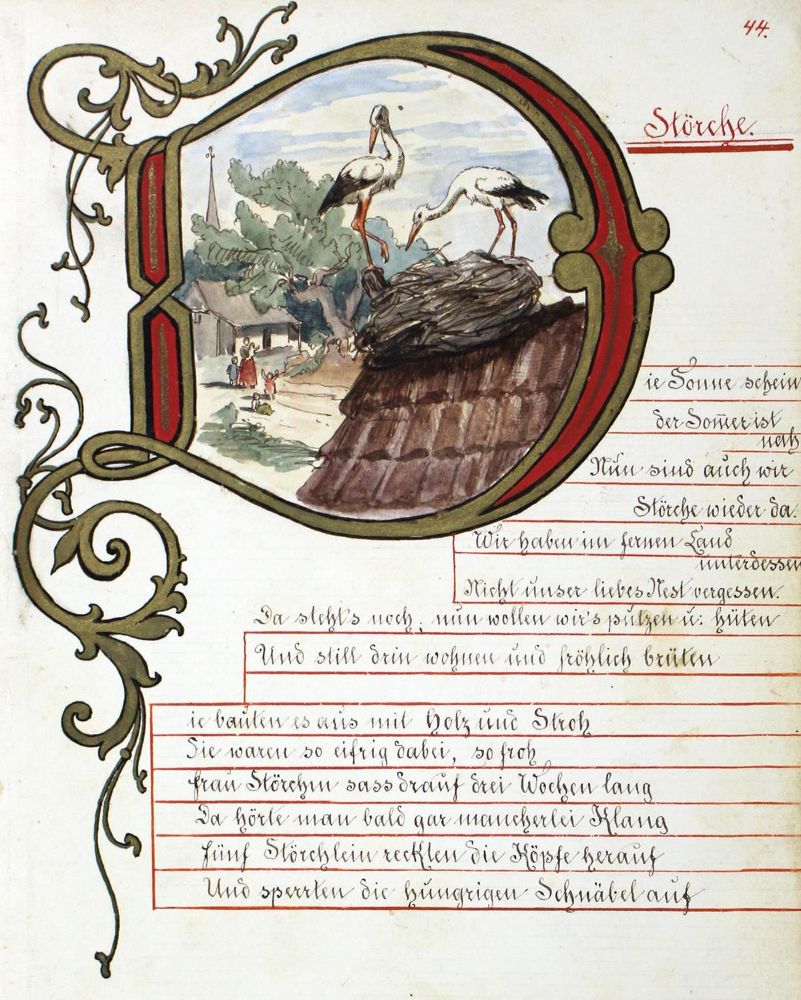 44.
Störche.
ie Sonne schein
der Som̅er ist
nah
Nun sind auch wir
Störche wieder da.
Wir haben im fernen Land
unterdessen
Nicht unser liebes Nest vergessen.
Da steht's noch, nun wollen wir's putzen u: hüten
Und still drin wohnen und fröhlich brüten
ie bauten es aus mit Holz und Stroh
Sie waren so eifrig dabei, so froh
Frau Störchin sass drauf drei Wochen lang
Da hörte man bald gar mancherlei Klang
Fünf Störchlein reckten die Köpfe herauf
Und sperrten die hungrigen Schnäbel auf